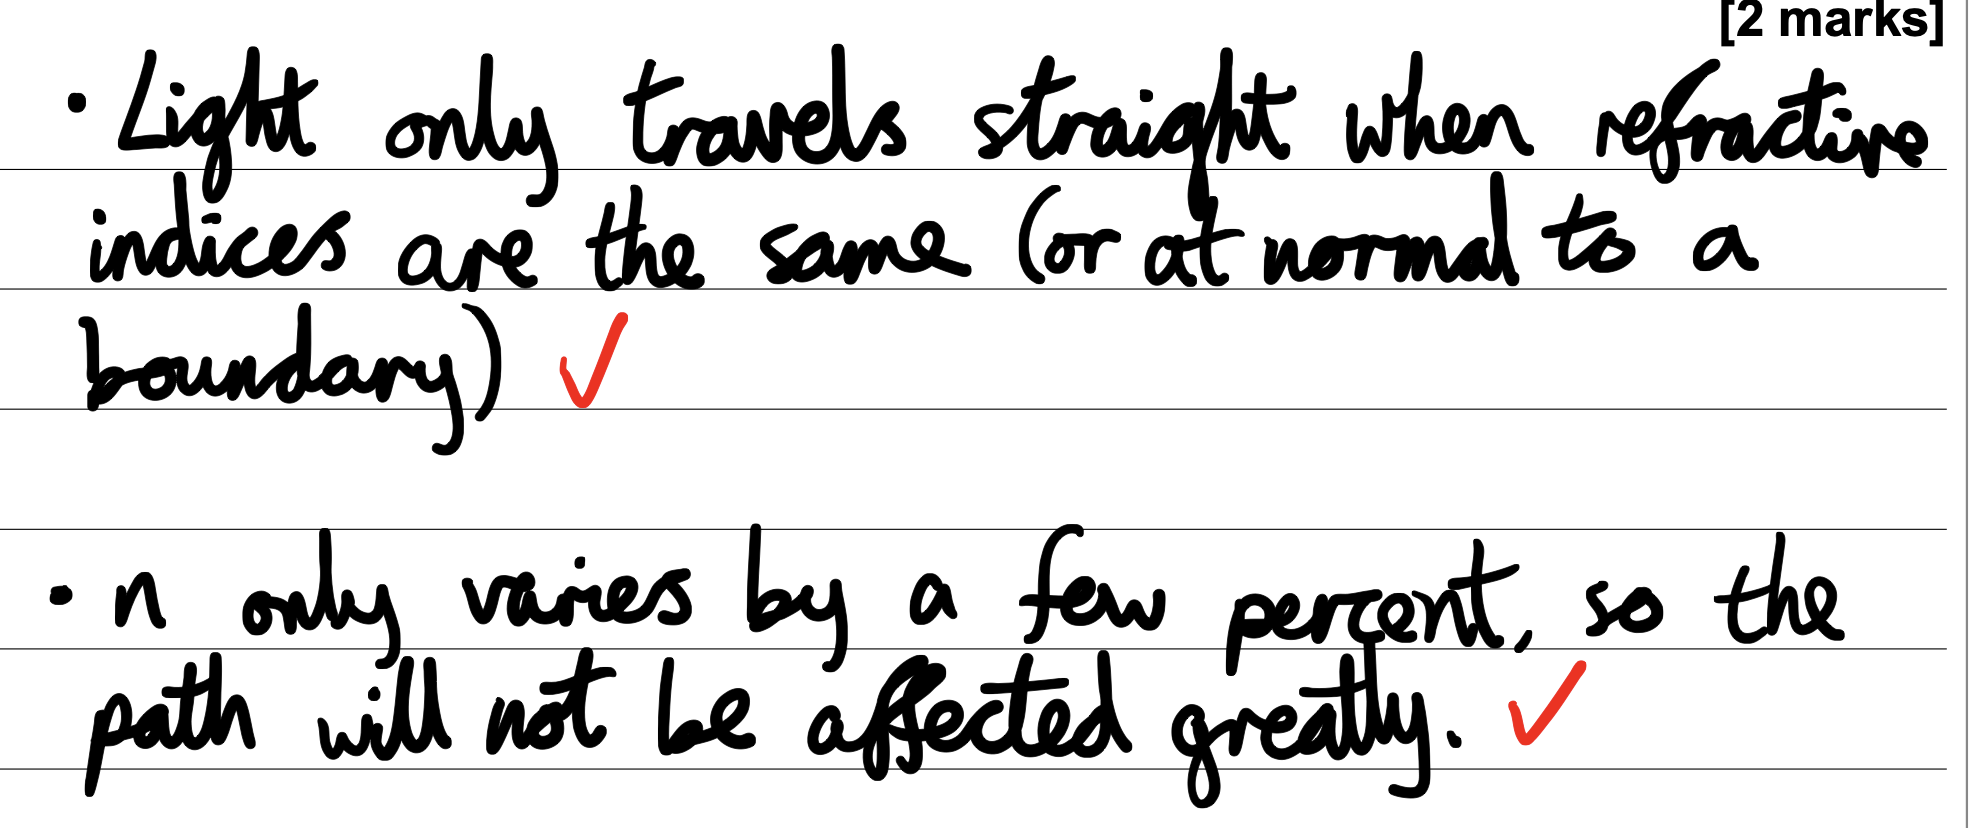 [2 marks]
· Light only travels straight when refractive
indices are the same (or at normal to a
boundary) ✓
· n only varies by a few percent, so the
path will not be affected greatly. ✓